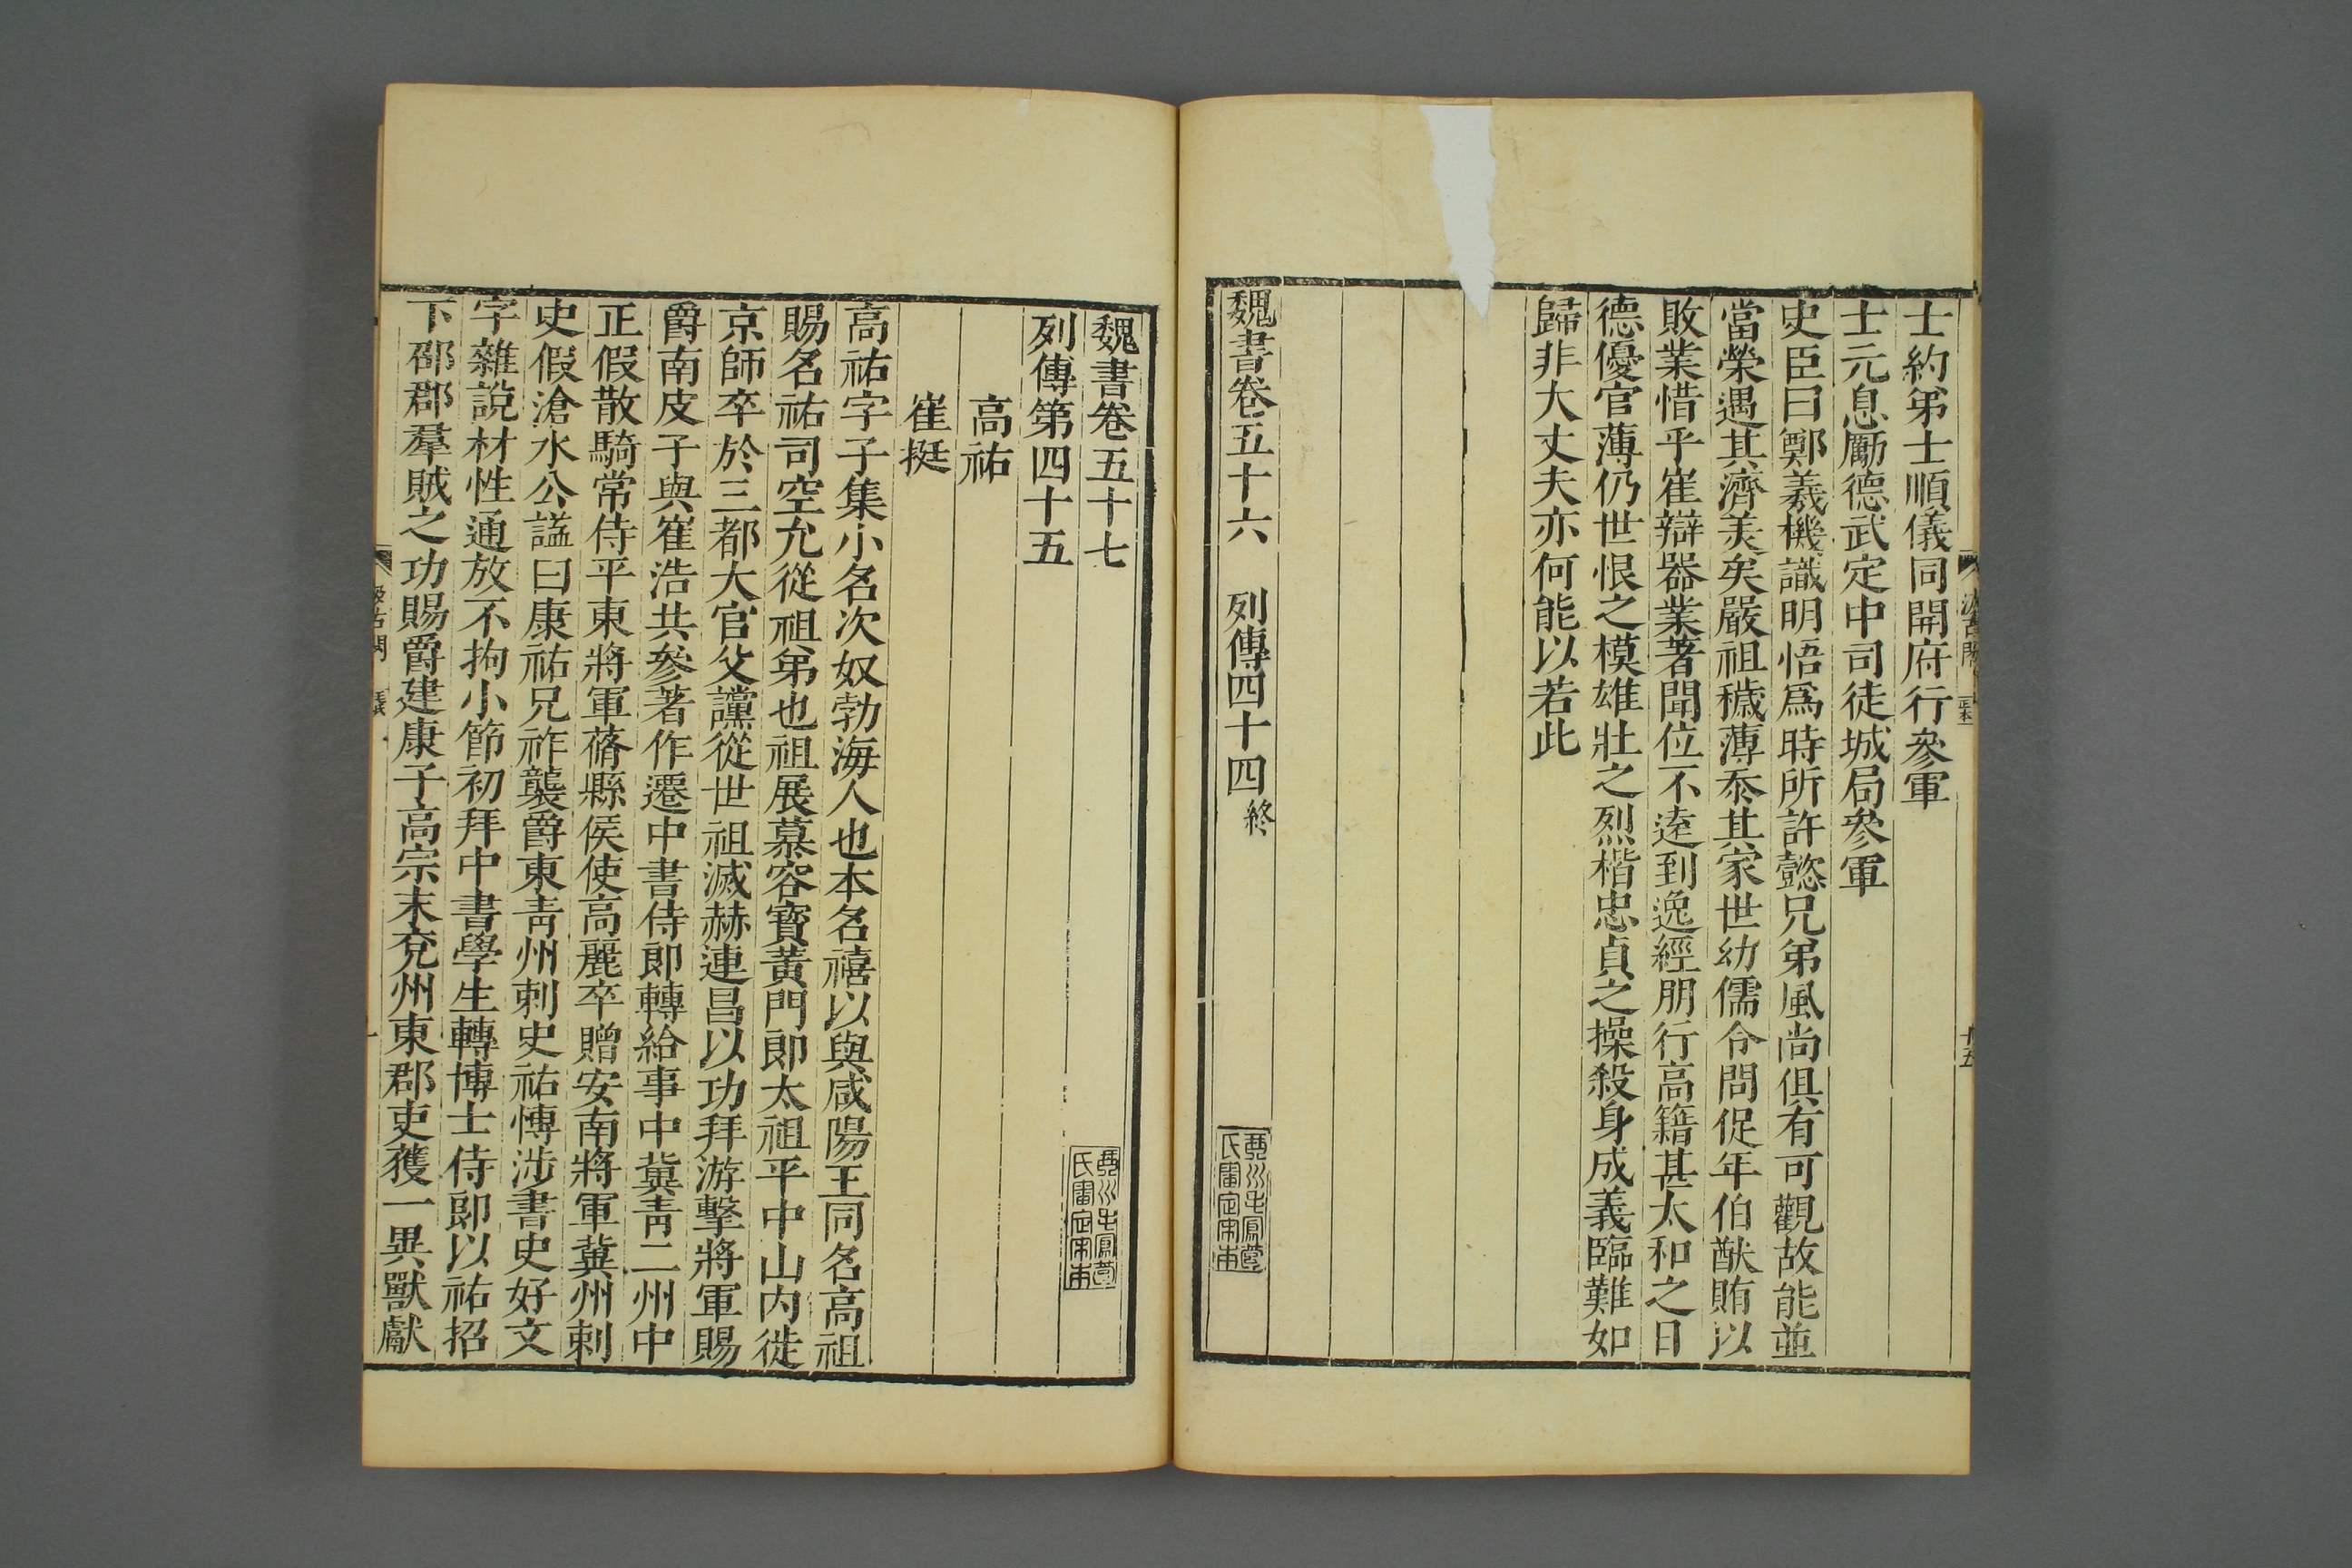 士約弟士順儀同開府行參軍
士元息勵德武定中司徒城局參軍
史臣曰鄭羲機識明悟爲時所許懿兄弟風尚俱有可觀故能並
當榮遇其濟美矣嚴祖穢薄忝其家世幼儒令問促年伯猷賄以
敗業惜乎崔辯器業著聞位不遠到逸經明行高籍甚太和之日
德優官薄仍世恨之模雄壯之烈楷忠貞之操殺身成義臨難如
歸非大丈夫亦何能以若此
魏書卷五十六 列傳四十四終
魏書卷五十七
列傳第四十五
高祐
崔挺
高祐字子集小名次奴勃海人也本名禧以與咸陽王同名高祖
賜名祐司空允從祖弟也祖展慕容寶黃門郎太祖平中山內徙
京師卒於三都大官父讜從世祖滅赫連昌以功拜游擊將軍賜
爵南皮子與崔浩共參著作遷中書侍郎轉給事中冀青二州中
正假散騎常侍平東將軍蓨縣侯使高麗卒贈安南將軍冀州刺
史假滄水公諡曰康祐兄祚襲爵東青州刺史祐愽涉書史好文
字雜說材性通放不拘小節初拜中書學生轉博士侍郎以祐招
下邵郡羣賊之功賜爵建康子高宗末兗州東郡吏獲一異獸獻